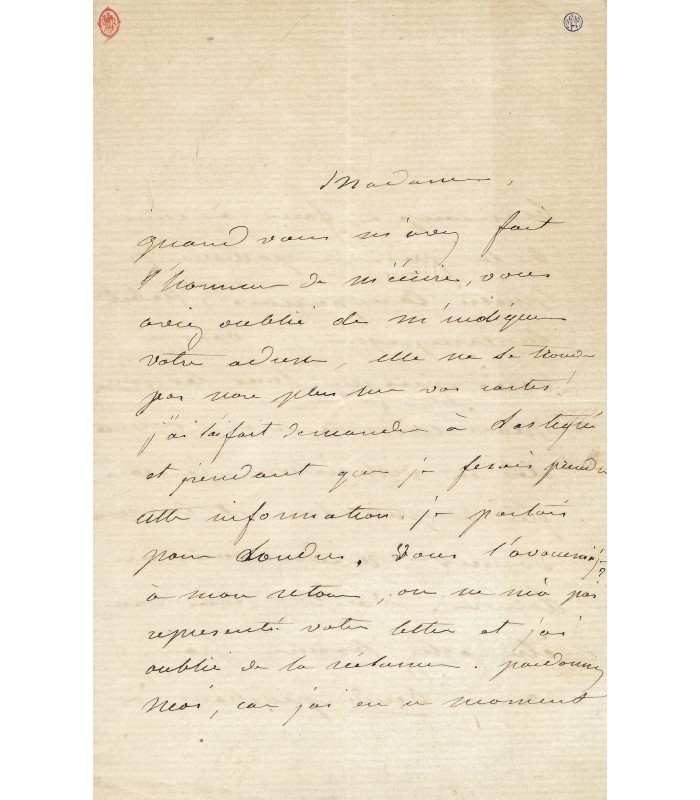 Madame,
quand vous m'avez fait
l'honneur de m'écrire, vous
aviez oublié de m'indiquer
votre adresse, elle ne se trouve
pas non plus sur vos cartes!
j'ai fait demander à
et pendant que je fesais prendre
cette information. je partais
pour Londres. Vous l'avouerai-je?
à mon retour, on ne m'a pas
representé votre lettre et j'ai
oublié de la réclamer. pardonnez
moi, car j'ai eu un moment